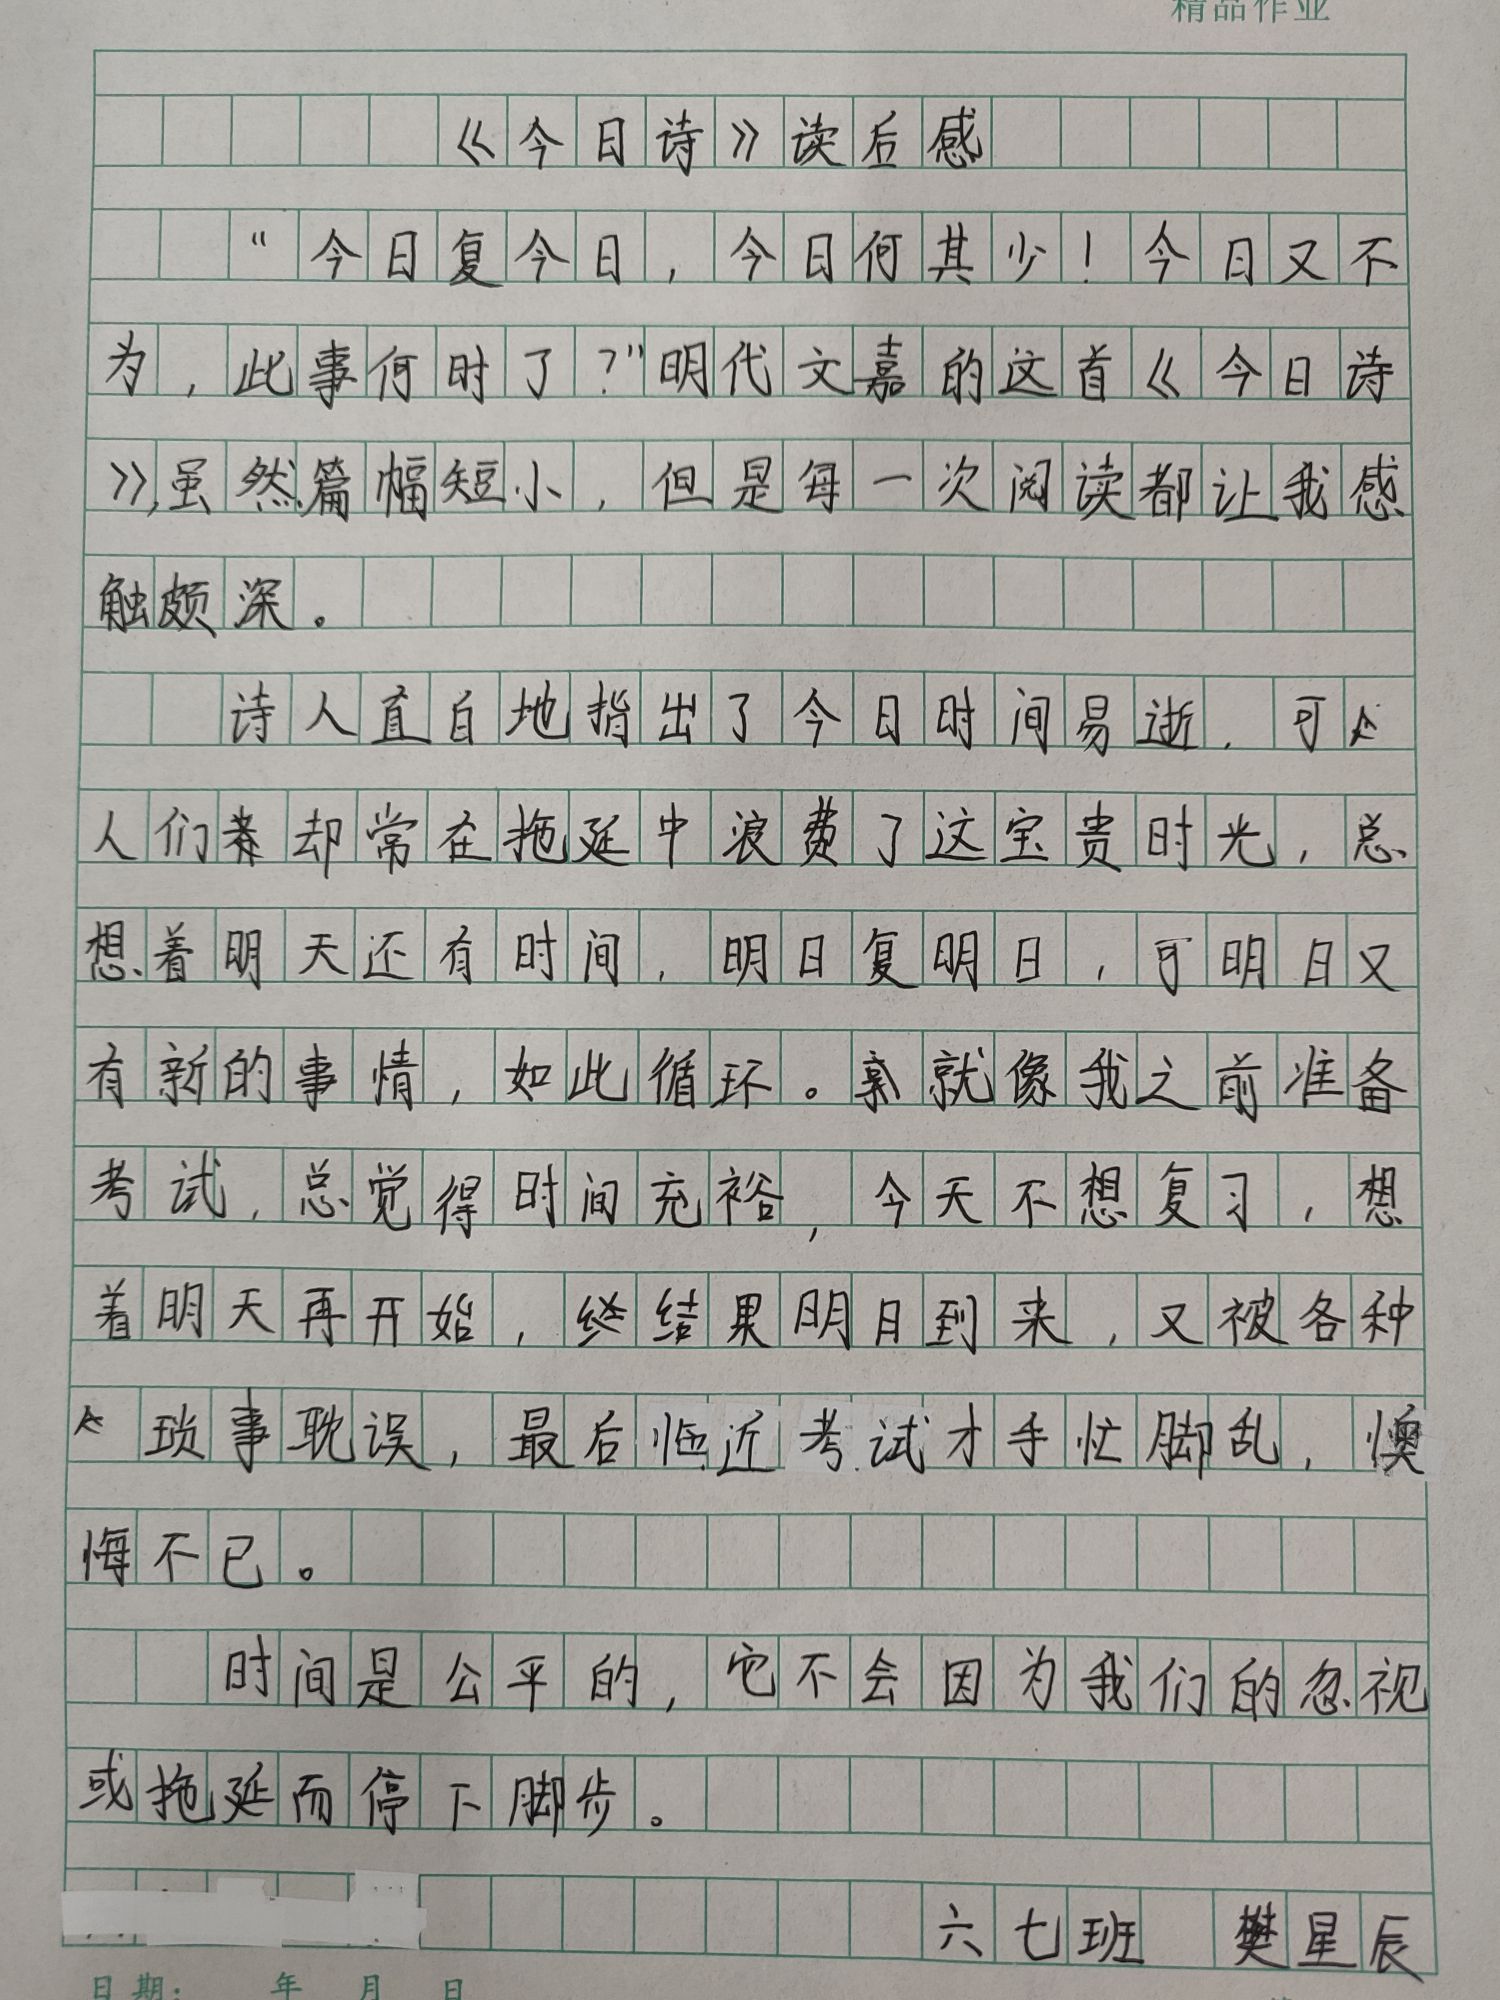 精品作业
《今日诗》读后感
“今日复今日，今日何其少！今日又不
为，此事何时了？”明代文嘉的这首《今日诗
》，虽然篇幅短小，但是每一次阅读都让我感
触颇深。
诗人直白地指出了今日时间易逝，可
人们却常在拖延中浪费了这宝贵时光，总
想着明天还有时间，明日复明日，可明日又
有新的事情，如此循环。就像我之前准备
考试，总觉得时间充裕，今天不想复习，想
着明天再开始，结果明日到来，又被各种
琐事耽误，最后临近考试才手忙脚乱，懊
悔不已。
时间是公平的，它不会因为我们的忽视
或拖延而停下脚步。
六七班 樊星辰
日期： 年 月 日